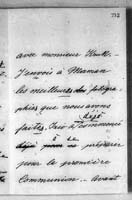 avec monsieur
J'envoie à Maman
les meilleures des photogra-
phies que nous avons
déjà
faites. Jai commencé
à me
déjà pour se préparer
pour la première
Communion. Avant